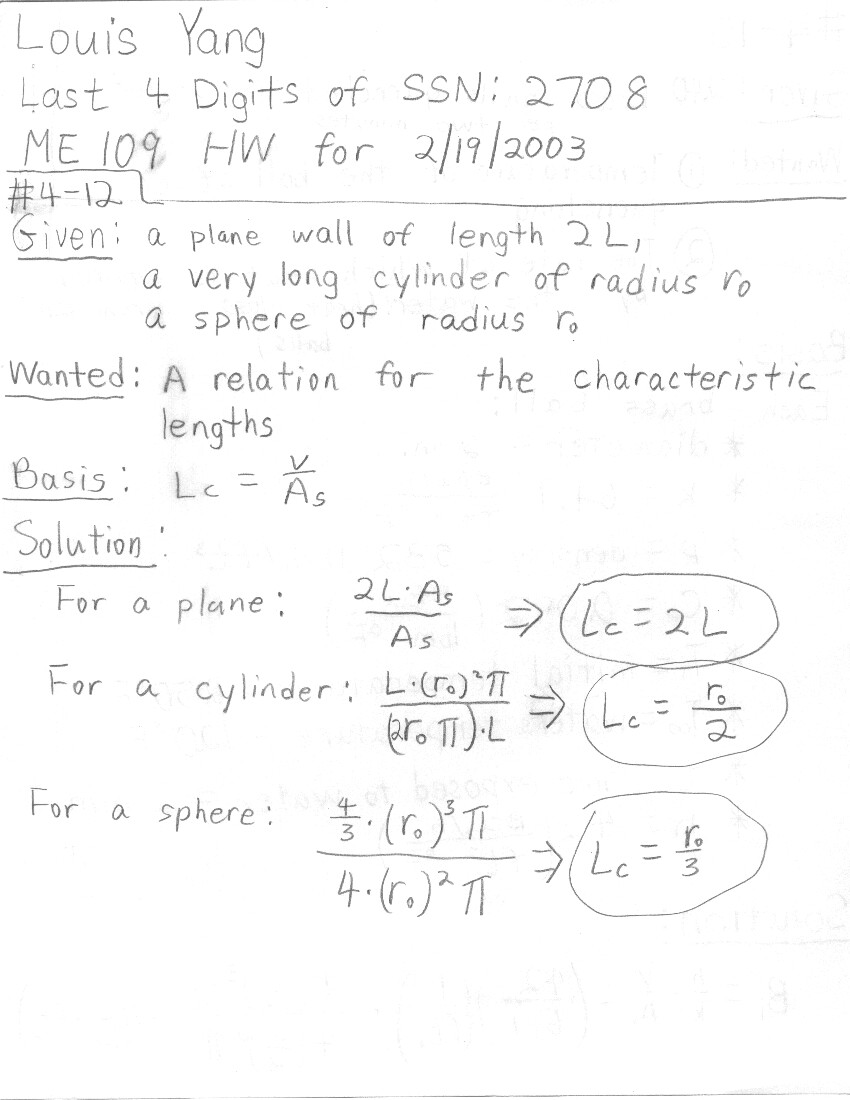 Louis Yang
Last 4 Digits of SSN: 2708
ME 109 HW for 2/19/2003
#4-12
Given: a plane wall of length 2L,
a very long cylinder of radius r₀
a sphere of radius r₀
Wanted: A relation for the characteristic
lengths
Basis: Lc = V/As
Solution:
For a plane: 2L·As/As ⇒ Lc = 2L
For a cylinder: L·(r₀)²π/(2r₀π)·L ⇒ Lc = r₀/2
For a sphere: 4/3·(r₀)³π/4·(r₀)²π ⇒ Lc = r₀/3